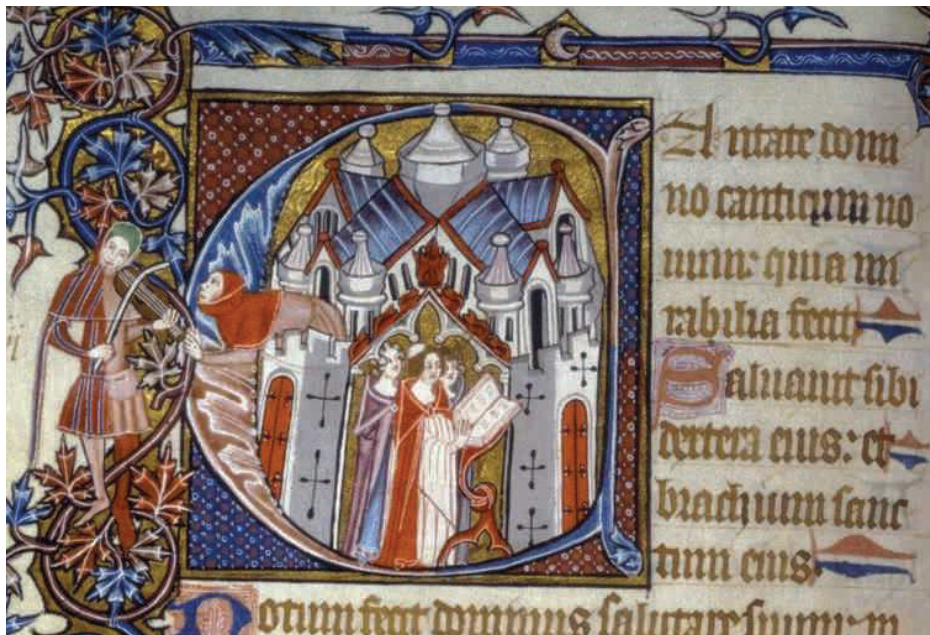 CAntate domi
no canticum no
uum: quia mi
rabilia fecit
Saluauit sibi
dextera eius: et
brachium sanc
tum eius.
Notum fecit dominus salutare suum: in